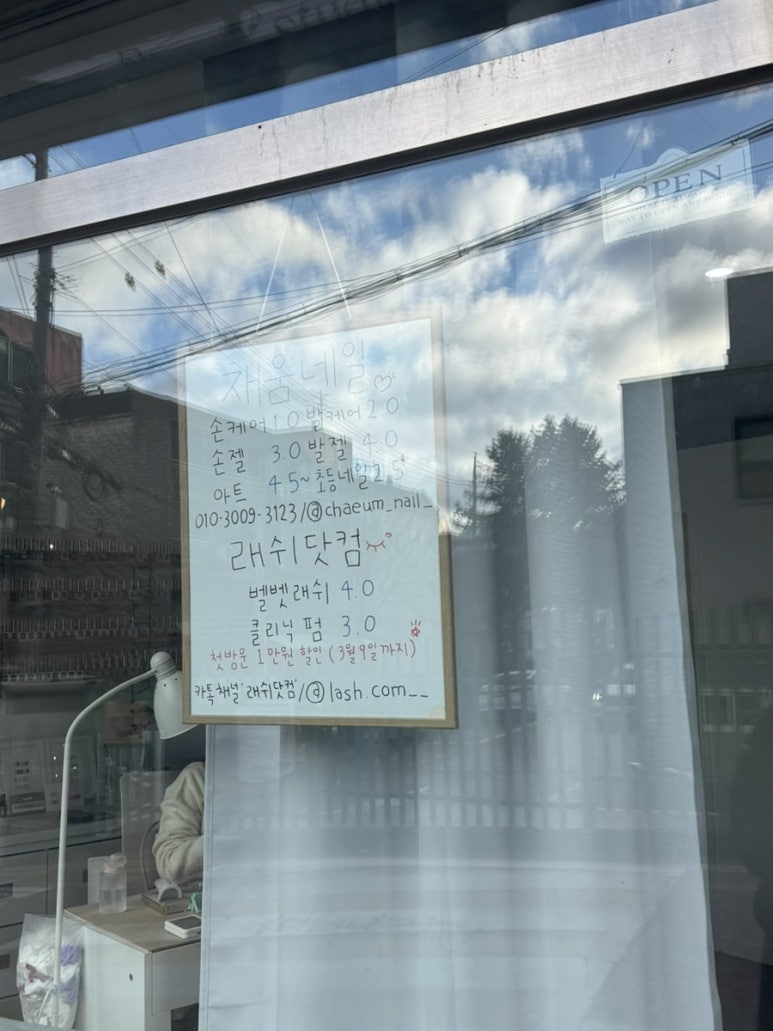 OPEN
WAY TO OPEN ANY DOOR
채움네일
손케어 1.0 발케어 2.0
손젤 3.0 발젤 4.0
아트 4.5~ 초등네일 2.5
010-3009-3123/@chaeum_nail_
래쉬닷컴
벨벳래쉬 4.0
클리닉펌 3.0
첫방문 1만원 할인 (3월9일까지)
카톡채널 '래쉬닷컴'/@lash.com__